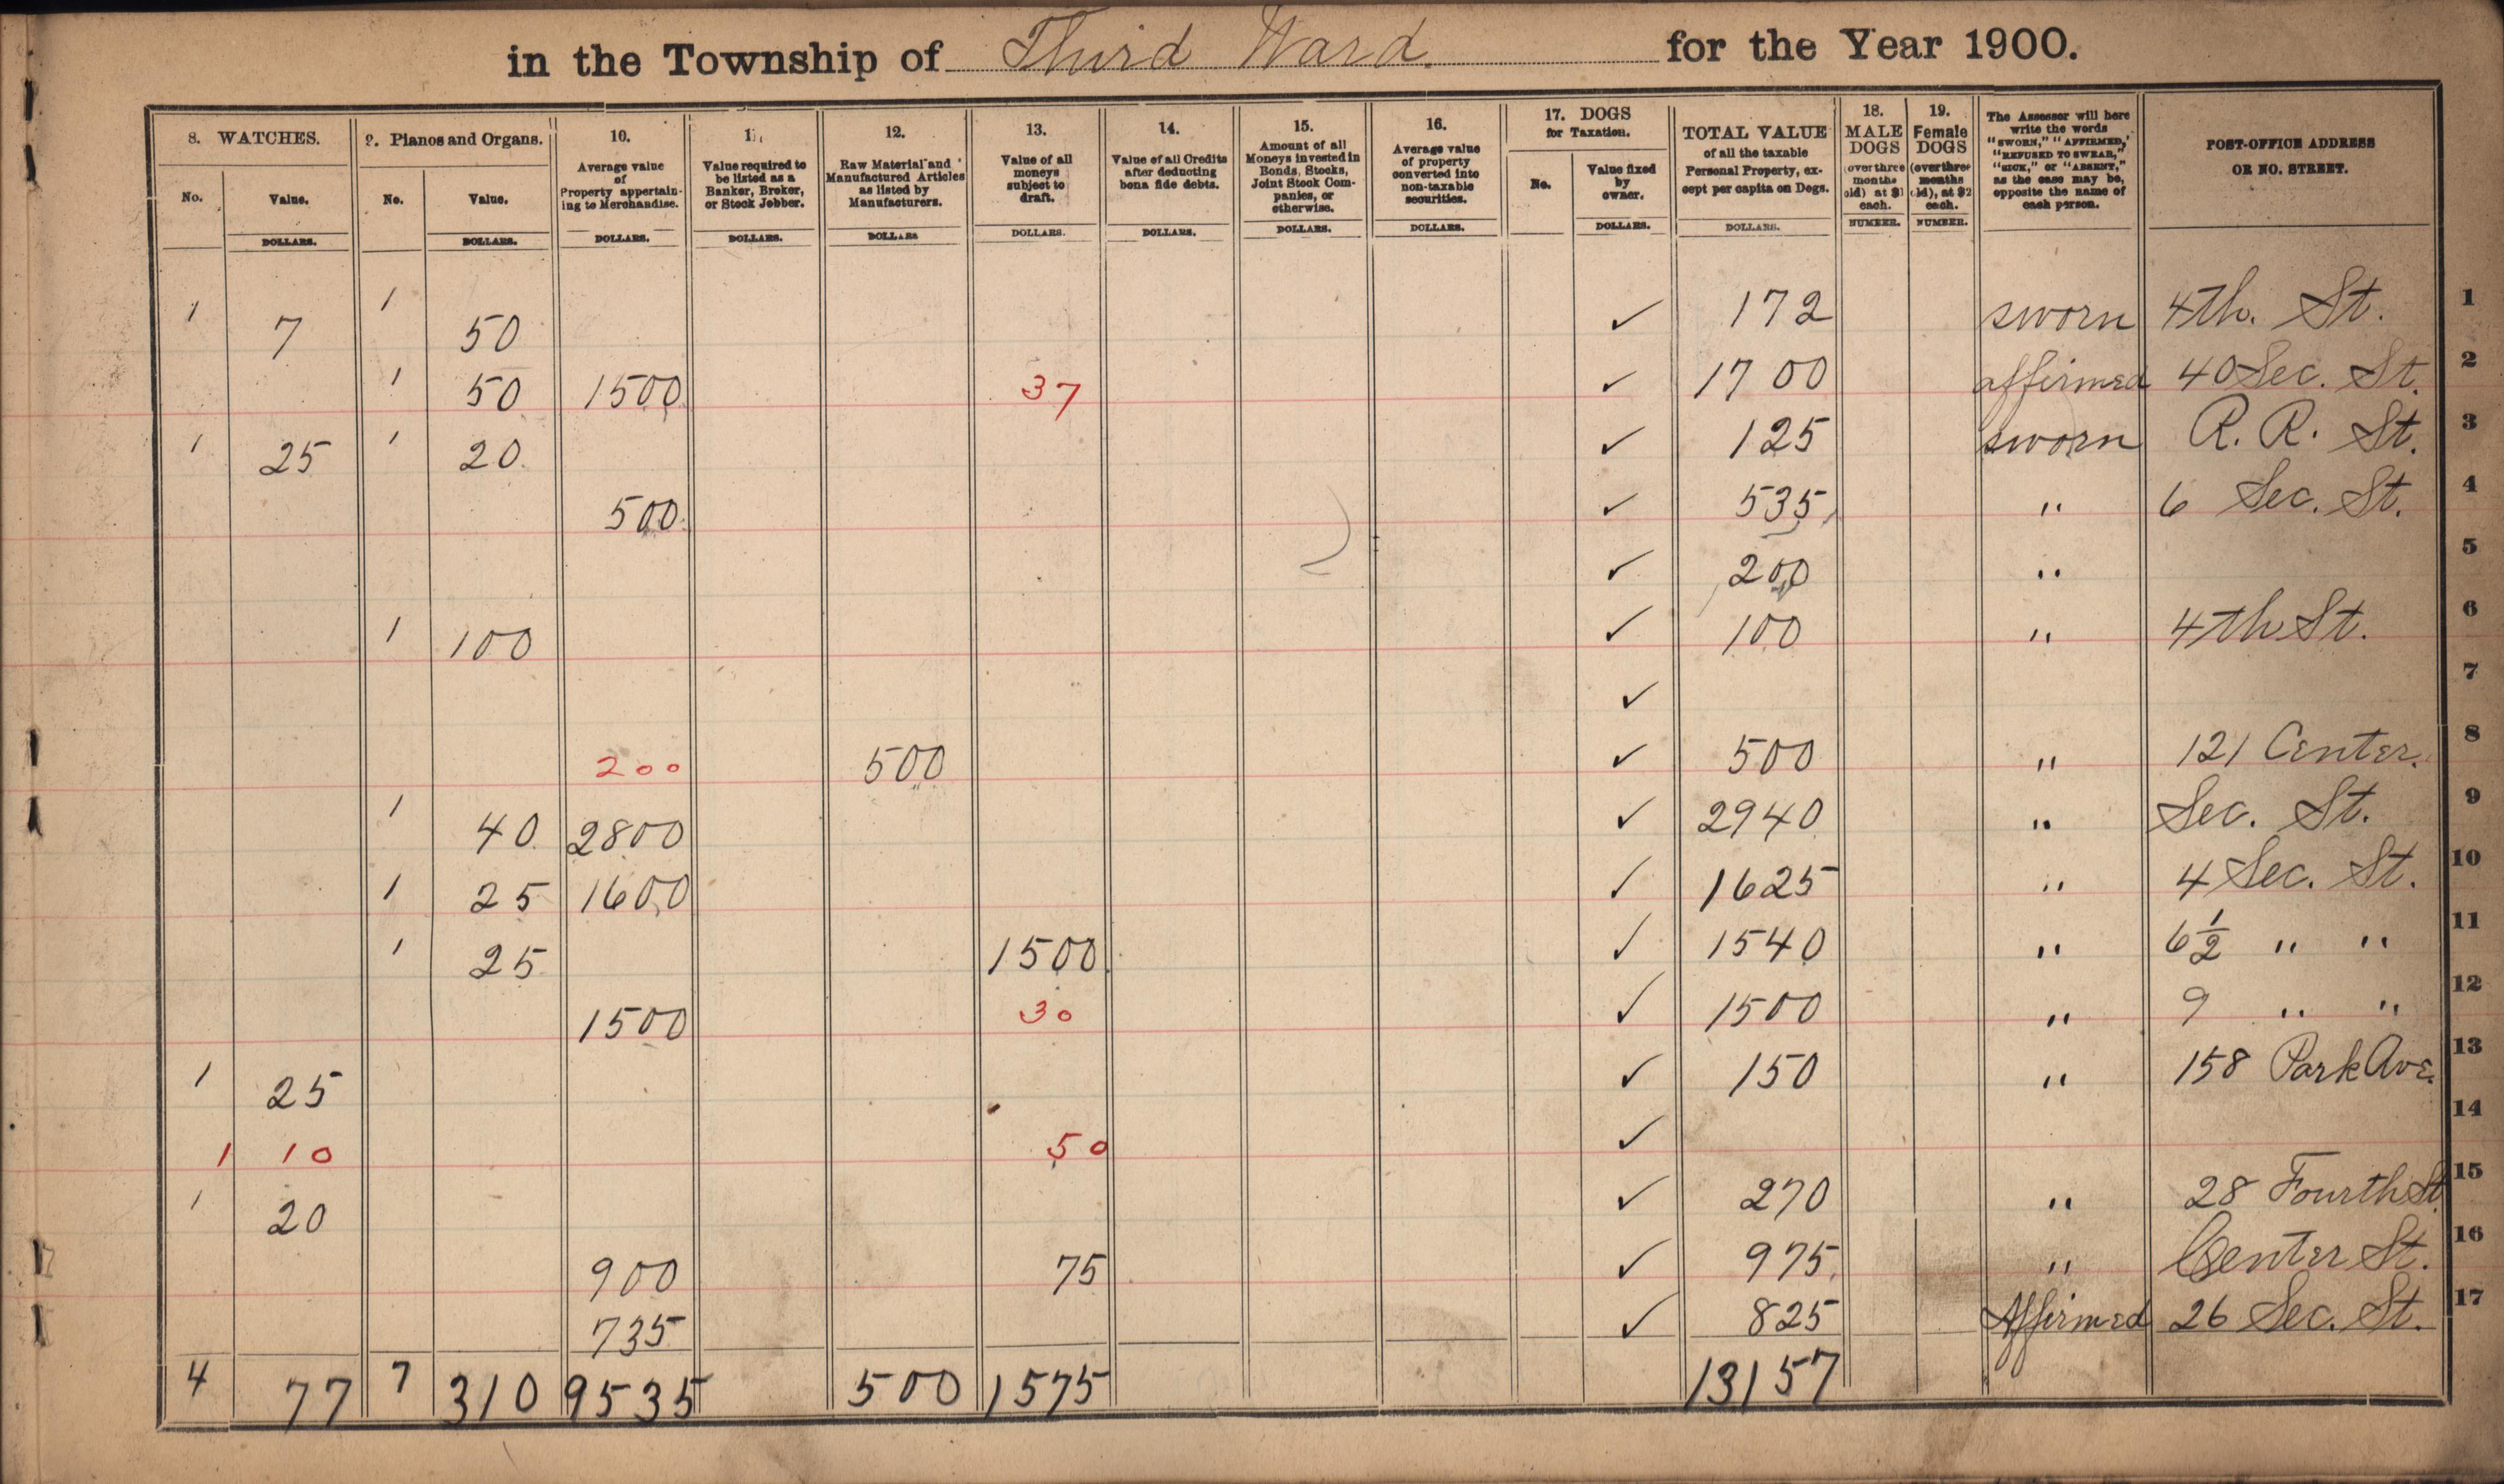 in the Township of Third Ward. for the Year 1900.
8. WATCHES. No. Value. DOLLARS.
9. Pianos and Organs. No. Value. DOLLARS.
10. Average value of Property appertaining to Merchandise. DOLLARS.
11. Value required to be listed as a Banker, Broker, or Stock Jobber. DOLLARS.
12. Raw Material and Manufactured Articles as listed by Manufacturers. DOLLARS
13. Value of all moneys subject to draft. DOLLARS.
14. Value of all Credits after deducting bona fide debts. DOLLARS.
15. Amount of all Moneys invested in Bonds, Stocks, Joint Stock Companies, or otherwise. DOLLARS.
16. Average value of property converted into non-taxable securities. DOLLARS.
17. DOGS for Taxation. No. Value fixed by owner. DOLLARS.
TOTAL VALUE of all the taxable Personal Property, except per capita on Dogs. DOLLARS.
18. MALE DOGS (over three months old) at $1 each. NUMBER.
19. Female DOGS (over three months old), at $2 each. NUMBER.
The Assessor will here write the words "SWORN," "AFFIRMED," "REFUSED TO SWEAR," "SICK," or "ABSENT," as the case may be, opposite the name of each person.
POST-OFFICE ADDRESS OR NO. STREET.
1 7 1 50 ✓ 172 sworn 4th. St. 1
1 50 1500 37 ✓ 1700 affirmed 40 Sec. St. 2
1 25 1 20 ✓ 125 sworn R. R. St. 3
500 ✓ 535 " 6 Sec. St. 4
✓ 200 " 5
1 100 ✓ 100 " 4th St. 6
✓ 7
200 500 ✓ 500 " 121 Center. 8
1 40 2800 ✓ 2940 " Sec. St. 9
1 25 1600 ✓ 1625 " 4 Sec. St. 10
1 25 1500 ✓ 1540 " 6 1/2 " " 11
1500 30 ✓ 1500 " 9 " " 12
1 25 ✓ 150 " 158 Park Ave. 13
1 10 50 ✓ 14
1 20 ✓ 270 " 28 Fourth St. 15
900 75 ✓ 975 " Center St. 16
735 ✓ 825 Affirmed 26 Sec. St. 17
4 77 7 310 9535 500 1575 13157